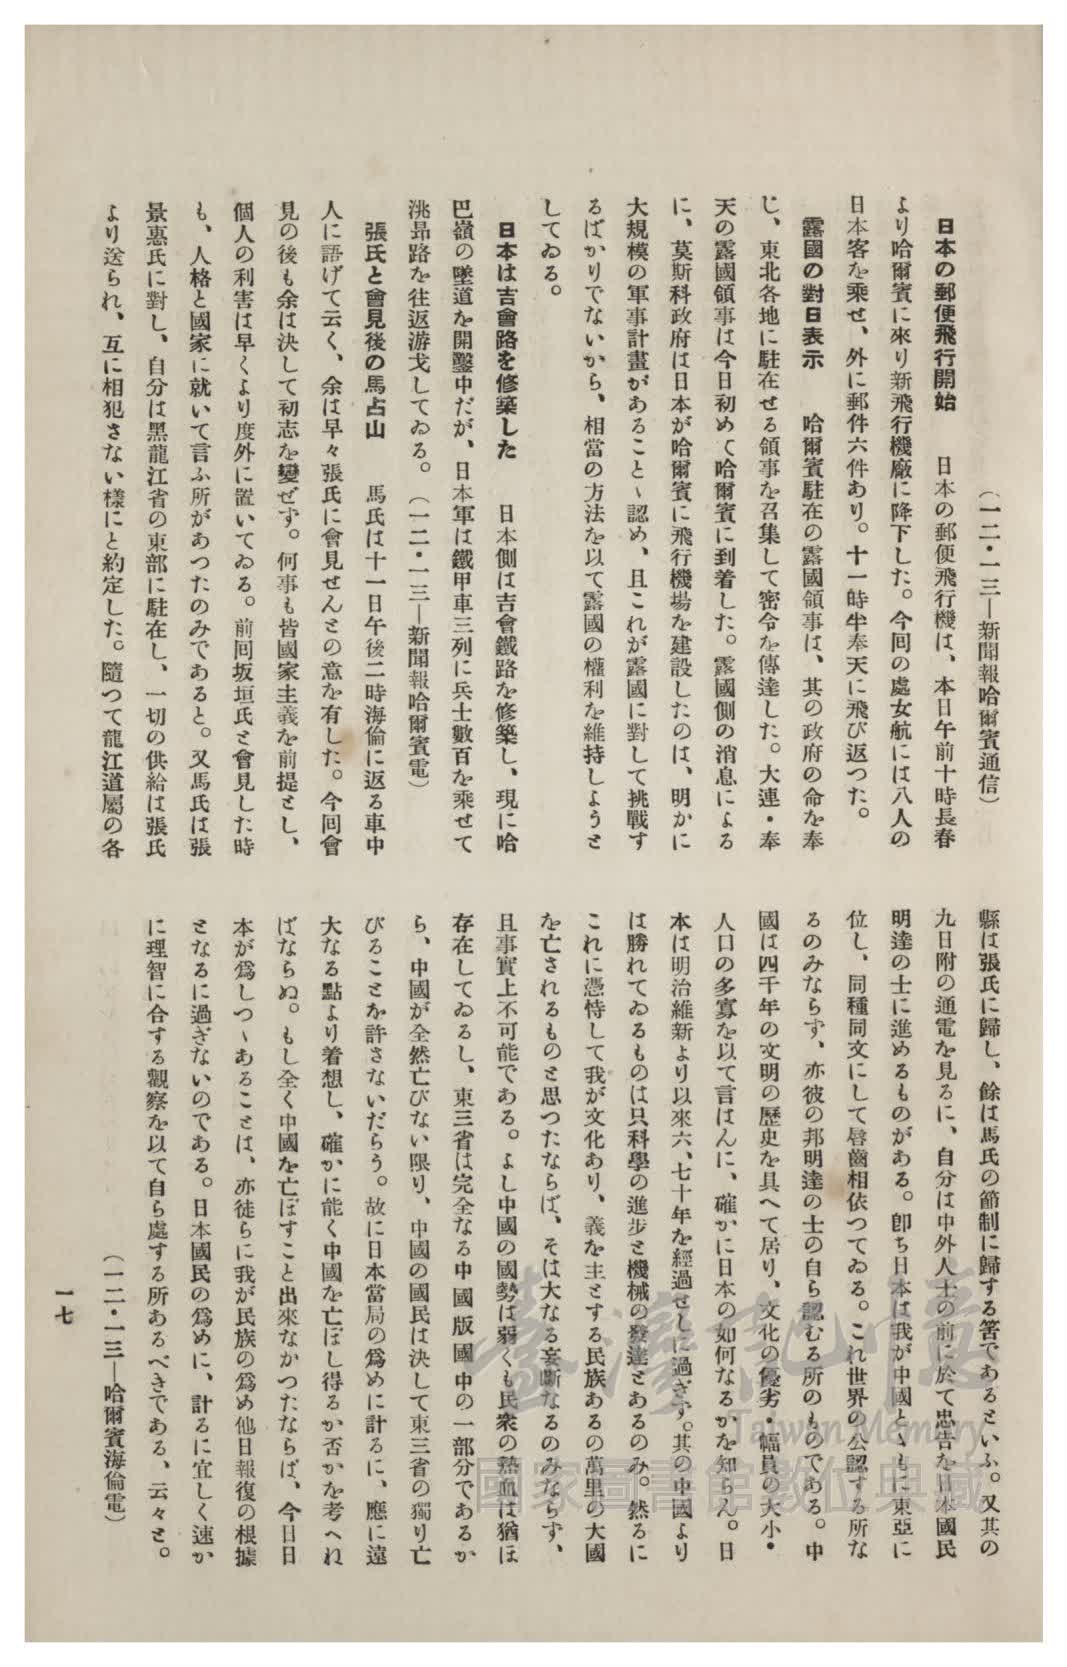 （一二・一三―新聞報哈爾賓通信）
日本の郵便飛行開始　日本の郵便飛行機は、本日午前十時長春
より哈爾賓に來り新飛行機廠に降下した。今回の處女航には八人の
日本客を乘せ、外に郵件六件あり。十一時半奉天に飛び返つた。
露國の對日表示　哈爾賓駐在の露國領事は、其の政府の命を奉
じ、東北各地に駐在せる領事を召集して密令を傳達した。大連・奉
天の露國領事は今日初めて哈爾賓に到着した。露國側の消息による
に、莫斯科政府は日本が哈爾賓に飛行機場を建設したのは、明かに
大規模の軍事計畫があることゝ認め、且これが露國に對して挑戰す
るばかりでないから、相當の方法を以て露國の權利を維持しようと
してゐる。
日本は吉會路を修築した　日本側は吉會鐵路を修築し、現に哈
巴嶺の墜道を開鑿中だが、日本軍は鐵甲車三列に兵士數百を乘せて
洮昻路を往返游戈してゐる。（一二・一三―新聞報哈爾賓電）
張氏と會見後の馬占山　馬氏は十一日午後二時海倫に返る車中
人に語げて云く、余は早々張氏に會見せんとの意を有した。今回會
見の後も余は決して初志を變ぜず。何事も皆國家主義を前提とし、
個人の利害は早くより度外に置いてゐる。前回坂垣氏と會見した時
も、人格と國家に就いて言ふ所があつたのみであると。又馬氏は張
景惠氏に對し、自分は黑龍江省の東部に駐在し、一切の供給は張氏
より送られ、互に相犯さない樣にと約定した。隨つて龍江道屬の各
縣は張氏に歸し、餘は馬氏の節制に歸する筈であるといふ。又其の
九日附の通電を見るに、自分は中外人士の前に於て忠告を日本國民
明達の士に進めるものがある。卽ち日本は我が中國とゝもに東亞に
位し、同種同文にして唇齒相依つてゐる。これ世界の公認する所な
るのみならず、亦彼の邦明達の士の自ら認むる所のものである。中
國は四千年の文明の歷史を具へて居り、文化の優劣・幅員の大小・
人口の多寡を以て言はんに、確かに日本の如何なるかを知らん。日
本は明治維新より以來六、七十年を經過せしに過ぎず。其の中國より
は勝れてゐるものは只科學の進步と機械の發達とあるのみ。然るに
これに憑恃して我が文化あり、義を主とする民族あるの萬里の大國
を亡されるものと思つたならば、そは大なる妄斷なるのみならず、
且事實上不可能である。よし中國の國勢は弱くも民衆の熱血は猶ほ
存在してゐるし、東三省は完全なる中國版圖中の一部分であるか
ら、中國が全然亡びない限り、中國の國民は決して東三省の獨り亡
びることを許さないだらう。故に日本當局の爲めに計るに、應に遠
大なる點より着想し、確かに能く中國を亡ぼし得るか否かを考へね
ばならぬ。もし全く中國を亡ぼすこと出來なかつたならば、今日日
本が爲しつゝあることは、亦徒らに我が民族の爲め他日報復の根據
となるに過ぎないのである。日本國民の爲めに、計るに宜しく速か
に理智に合する觀察を以て自ら處する所あるべきである、云々と。
（一二・一三―哈爾賓海倫電）
一七
臺灣記憶
Taiwan Memory
國家圖書館數位典藏